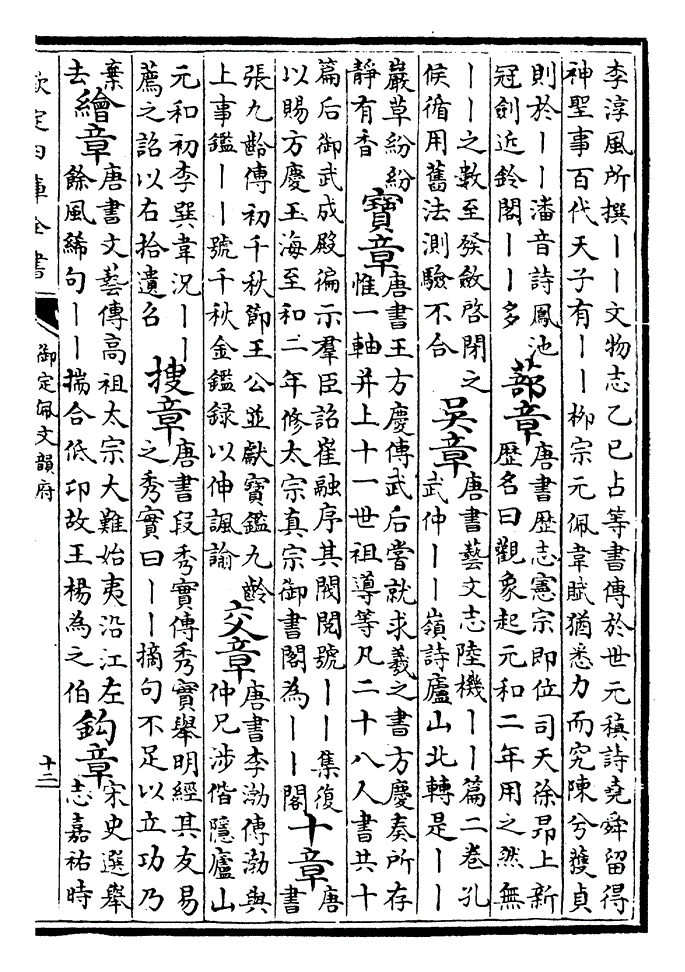 李淳風所撰丨丨文物志乙巳占等書傳於世元稹詩堯舜留得
神聖事百代天子有丨丨柳宗元佩韋賦猶悉力而究陳兮獲貞
則於丨丨潘音詩鳳池
冠劍近鈴閣丨丨多
蔀章
唐書歴志憲宗即位司天徐昂上新
歴名曰觀象起元和二年用之然無
丨丨之數至發斂啓閉之
候循用舊法測驗不合
吳章
唐書藝文志陸機丨丨篇二卷孔
武仲丨丨嶺詩廬山北轉是丨丨
巖草紛紛
靜有香
寶章
唐書王方慶傳武后嘗就求羲之書方慶奏所存
惟一軸并上十一世祖導等凡二十八人書共十
篇后御武成殿徧示羣臣詔崔融序其閥閱號丨丨集復
以賜方慶玉海至和二年修太宗真宗御書閣為丨丨閣
十章
唐
書
張九齡傳初千秋節王公並獻寶鑑九齡
上事鑑丨丨號千秋金鑑録以伸諷諭
交章
唐書李渤傳渤與
仲兄涉偕隱廬山
元和初李巽韋況丨丨
薦之詔以右拾遺召
搜章
唐書段秀實傳秀實舉明經其友易
之秀實曰丨丨摘句不足以立功乃
棄
去
繪章
唐書文藝傳高祖太宗大難始夷沿江左
餘風絺句丨丨揣合低卬故王楊為之伯
鈎章
宋史選舉
志嘉祐時
欽定四庫全書
御定佩文韻府
十二